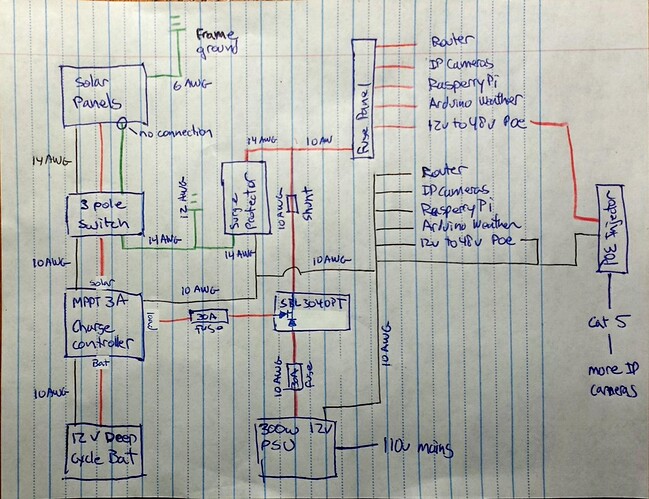 Frame
ground
6 AWG
Solar
Panels
no connection
14 AWG
3 pole
Switch
12 AWG
14 AWG
14 AWG
Surge
Protector
14 AWG
10 AW
10 AWG
shunt
Fuse Panel
Router
IP Cameras
RaspberryPi
Arduino Weather
12v to 48v PoE
Router
IP Cameras
RaspberryPi
Arduino Weather
12v to 48v PoE
POE Injector
Cat 5
more IP
cameras
10 AWG
Solar
MPPT 3A
Charge
controller
Load
Bat
10 AWG
30A
fuse
SBL3040PT
10 AWG
10 AWG
30A
fuse
10 AWG
10 AWG
12V Deep
Cycle Bat
300w 12v
PSU
110v mains